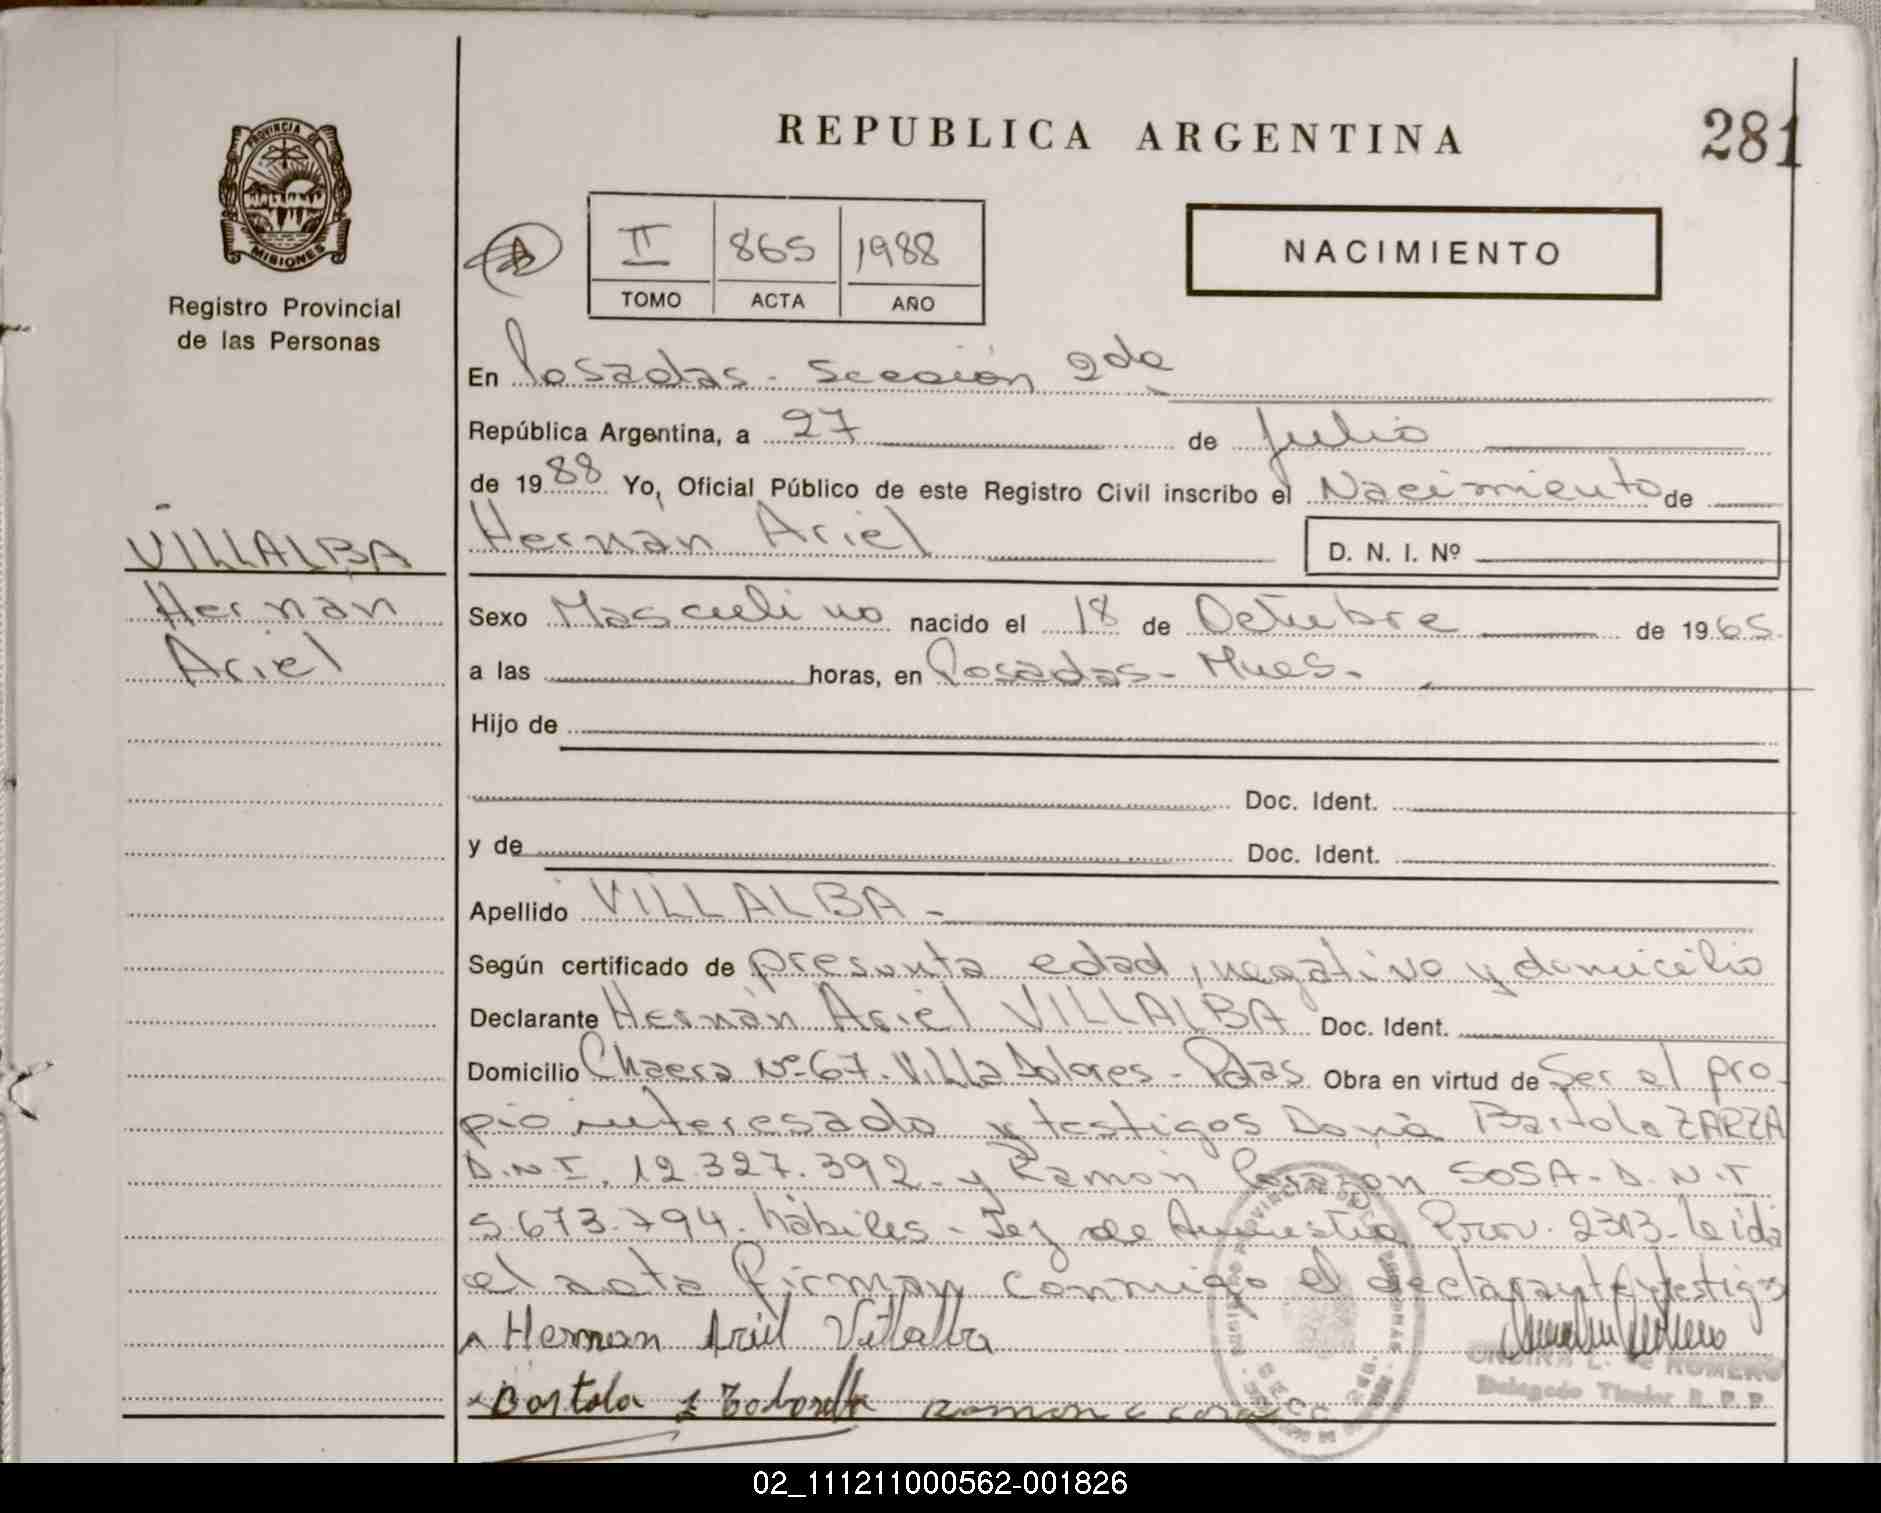 REPUBLICA ARGENTINA
281
PROVINCIA DE
MISIONES
Registro Provincial
de las Personas
II 865 1988
TOMO ACTA AÑO
NACIMIENTO
En Posadas - Sección 2da
República Argentina, a 27 de Julio
de 1988 Yo, Oficial Público de este Registro Civil inscribo el Nacimiento de
Hernán Ariel D. N. I. Nº
VILLALBA
Hernán
Ariel
Sexo Masculino nacido el 18 de Octubre de 1965
a las horas, en Posadas - Mnes.
Hijo de
Doc. Ident.
y de Doc. Ident.
Apellido VILLALBA -
Según certificado de presunta edad, negativo y domicilio
Declarante Hernán Ariel VILLALBA Doc. Ident.
Domicilio Chacra Nº 67 - Villa Dolores - Pdas Obra en virtud de Ser el pro-
pio interesado y testigos Doña Bartola ZARZA
D.N.I. 12.327.392 - y Ramón Corazon SOSA - D.N.I
5.673.794. hábiles - Ley de Amnistia Prov. 2313 - leida
el acta firman conmigo el declarante y testigos
Hernan Ariel Villalba
Bartola Ramon c
L. de ROMERO
Delegado Titular R. P. P.
02_111211000562-001826